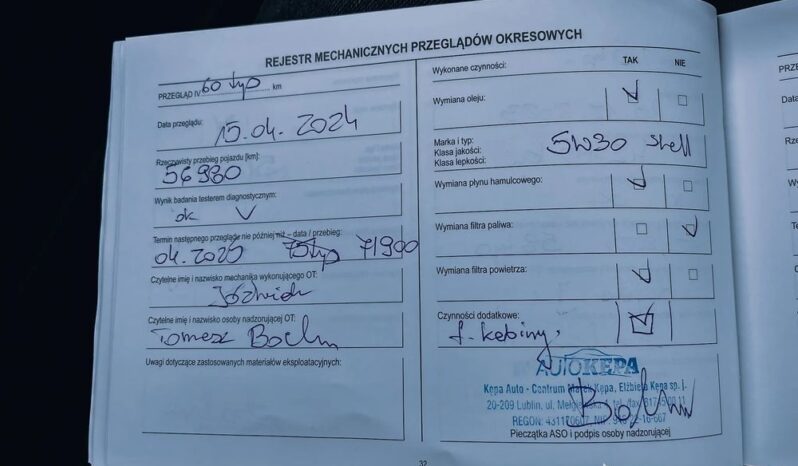 REJESTR MECHANICZNYCH PRZEGLĄDÓW OKRESOWYCH
PRZEGLĄD IV 60 tyś km
Data przeglądu:
15.04.2024
Rzeczywisty przebieg pojazdu [km]:
56980
Wynik badania testerem diagnostycznym:
ok V
Termin następnego przeglądu nie później niż – data / przebieg:
04.2025 71900
Czytelne imię i nazwisko mechanika wykonującego OT:
Czytelne imię i nazwisko osoby nadzorującej OT:
Tomasz
Uwagi dotyczące zastosowanych materiałów eksploatacyjnych:
Wykonane czynności: TAK NIE
Wymiana oleju:
Marka i typ:
Klasa jakości:
Klasa lepkości:
5W30 Shell
Wymiana płynu hamulcowego:
Wymiana filtra paliwa:
Wymiana filtra powietrza:
Czynności dodatkowe:
f. kabiny,
AUTOKĘPA
Kępa Auto - Centrum Marek Kępa, Elżbieta Kępa sp. j.
20-209 Lublin, ul.
REGON:
Pieczątka ASO i podpis osoby nadzorującej
32
PRZE
Data
Rze
Wy
Te